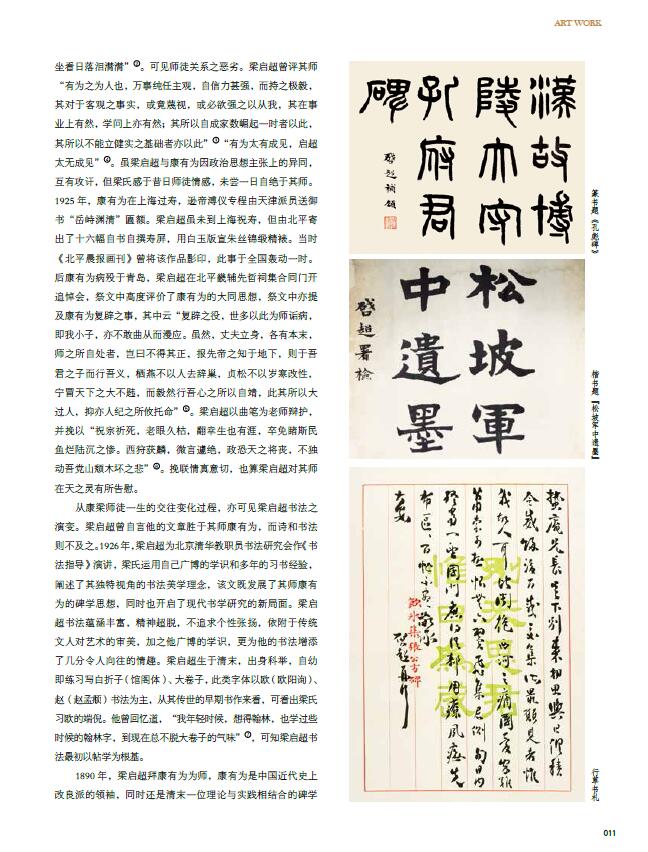 ART WORK
坐看日落泪潸潸”②。可见师徒关系之恶劣。梁启超曾评其师
“有为之为人也，万事纯任主观，自信力甚强，而持之极毅，
其对于客观之事实，或竟蔑视，或必欲强之以从我，其在事
业上有然，学问上亦有然；其所以自成家数崛起一时者以此，
其所以不能立健实之基础者亦以此”③“有为太有成见，启超
太无成见”④。虽梁启超与康有为因政治思想主张上的异同，
互有攻讦，但梁氏感于昔日师徒情感，未尝一日自绝于其师。
1925年，康有为在上海过寿，逊帝溥仪专程由天津派员送御
书“岳峙渊清”匾额。梁启超虽未到上海祝寿，但由北平寄
出了十六幅自书自撰寿屏，用白玉版宣朱丝锦缎精裱。当时
《北平晨报画刊》曾将该作品影印，此事于全国轰动一时。
后康有为病殁于青岛，梁启超在北平畿辅先哲祠集合同门开
追悼会，祭文中高度评价了康有为的大同思想，祭文中亦提
及康有为复辟之事，其中云“复辟之役，世多以此为师诟病，
即我小子，亦不敢曲从而漫应。虽然，丈夫立身，各有本末，
师之所自处者，岂曰不得其正，报先帝之知于地下，则于吾
君之子而行吾义，栖燕不以人去辞巢，贞松不以岁寒改性，
宁冒天下之大不韪，而毅然行吾心之所以自靖，此其所以大
过人，抑亦人纪之所攸托命”⑤。梁启超以曲笔为老师辩护，
并挽以“祝宗祈死，老眼久枯，翻幸生也有涯，卒免睹斯民
鱼烂陆沉之惨。西狩获麟，微言遽绝，政恐天之将丧，不独
动吾党山颓木坏之悲”⑥。挽联情真意切，也算梁启超对其师
在天之灵有所告慰。
从康梁师徒一生的交往变化过程，亦可见梁启超书法之
演变。梁启超曾自言他的文章胜于其师康有为，而诗和书法
则不及之。1926年，梁启超为北京清华教职员书法研究会作《书
法指导》演讲，梁氏运用自己广博的学识和多年的习书经验，
阐述了其独特视角的书法美学理念，该文既发展了其师康有为
的碑学思想，同时也开启了现代书学研究的新局面。梁启
超书法蕴涵丰富，精神超脱，不追求个性张扬，依附于传统
文人对艺术的审美，加之他广博的学识，更为他的书法增添
了几分令人向往的情趣。梁启超生于清末，出身科举，自幼
即练习写白折子（馆阁体）、大卷子，此类字体以欧（欧阳询）、
赵（赵孟頫）书法为主，从其传世的早期书作来看，可看出梁氏
习欧的端倪。他曾回忆道，“我年轻时候，想得翰林，也学过些
时候的翰林字，到现在总不脱大卷子的气味”⑦，可知梁启超书
法最初以帖学为根基。
1890年，梁启超拜康有为为师，康有为是中国近代史上
改良派的领袖，同时还是清末一位理论与实践相结合的碑学
漢故博
陵太守
孔府君
碑
啟超補題
篆书题《孔彪碑》
松坡軍
中遺墨
啟超署檢
楷书题《松坡军中遗墨》
兄長足下別來相思與日俱積
行草书札
011